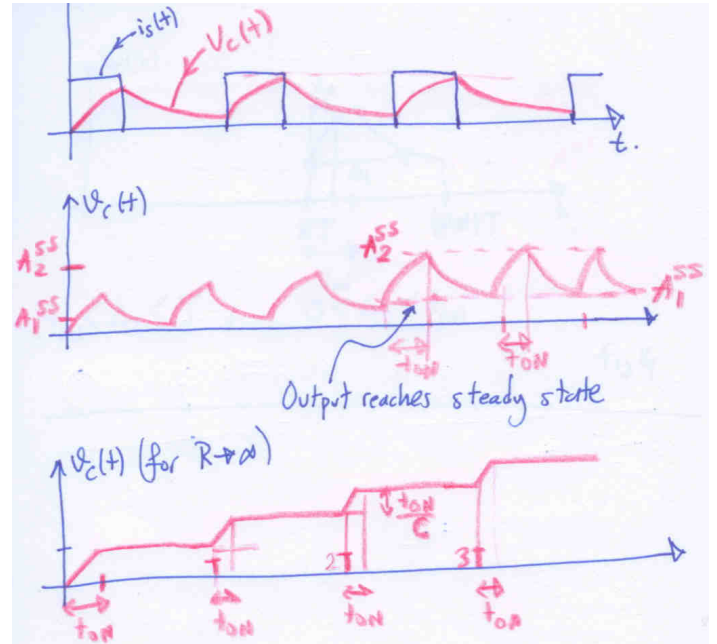 is(t)
Vc(t)
t.
vc(t)
A2^SS
A1^SS
A2^SS
A1^SS
tON
tON
Output reaches steady state
vc(t) (for R→∞)
tON/C
T
2T
3T
tON
tON
tON
tON